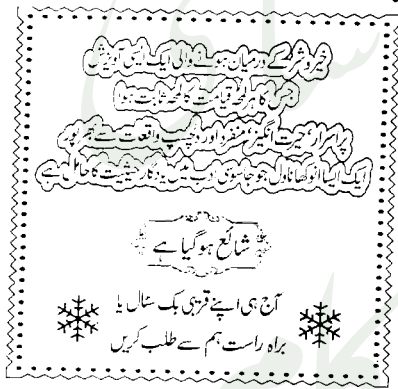 خیر و شر کے درمیان ہونے والی ایک ایسی آویزش
جس کا ہر لمحہ قیامت کا لمحہ ثابت ہوا
پراسرار، حیرت انگیز، منفرد اور دلچسپ واقعات سے بھرپور
ایک ایسا انوکھا ناول جو جاسوسی ادب میں یادگار حیثیت کا حامل ہے
شائع ہو گیا ہے
آج ہی اپنے قریبی بک سٹال یا
براہ راست ہم سے طلب کریں